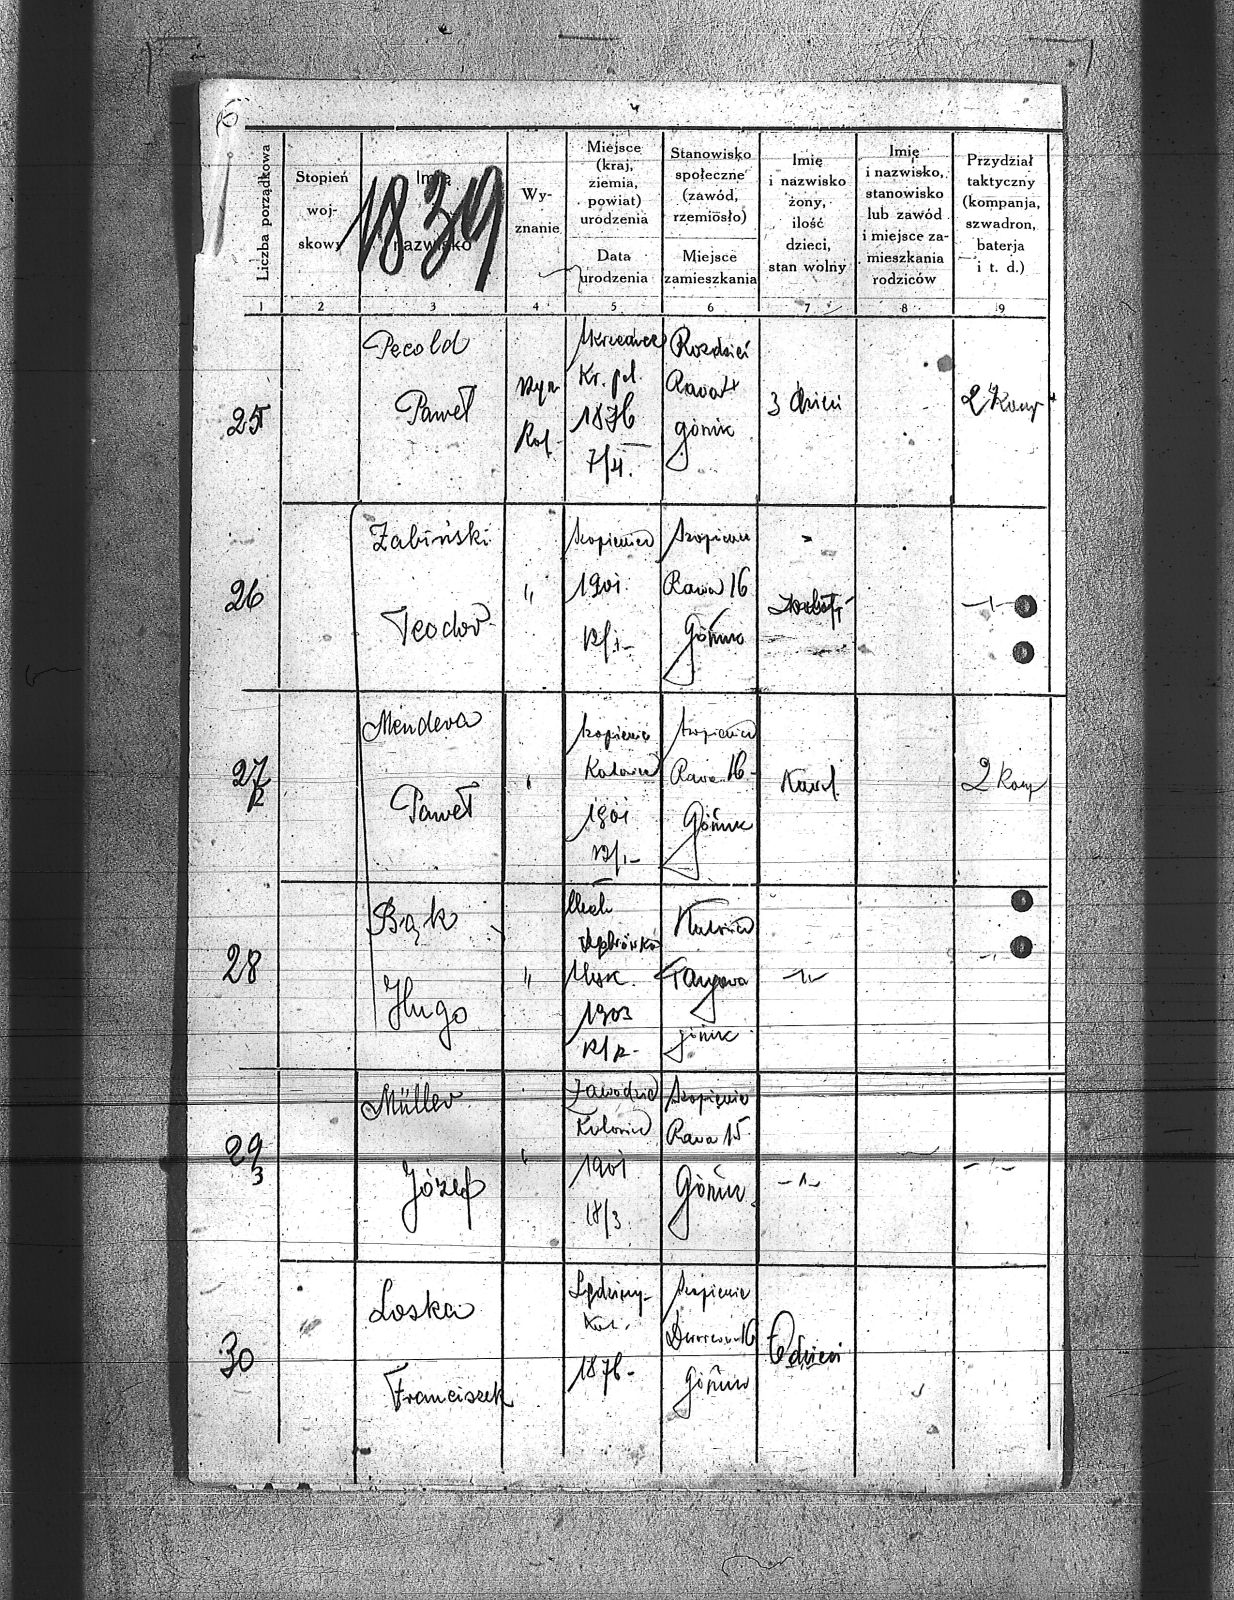 Liczba porządkowa
Stopień
woj-
skowy
Imię
nazwisko
1839
Wy-
znanie
Miejsce
(kraj,
ziemia,
powiat)
urodzenia
Data
urodzenia
Stanowisko
społeczne
(zawód,
rzemiosło)
Miejsce
zamieszkania
Imię
i nazwisko
żony,
ilość
dzieci,
stan wolny
Imię
i nazwisko,
stanowisko
lub zawód
i miejsce za-
mieszkania
rodziców
Przydział
taktyczny
(kompanja,
szwadron,
baterja
i t. d.)
1 2 3 4 5 6 7 8 9
25
Pecold
Paweł
Rzym
Kat
1876
Rozdzień
Rawa 4
górnik
3 dzieci
2 Komp
26
Żabiński
Teodor
"
Szopienice
1901
12/1
Szopienice
Rawa 16
Górnik
27
Mendera
Paweł
"
Szopienice
Katowice
1901
12/1
Szopienice
Rawa 16
Górnik
Kawal
2 Komp
28
Bąk
Hugo
"
1903
Katowice
Targowa
górnik
-"-
29
3
Müller
Józef
"
Zawodzie
Katowice
1901
18/3
Szopienice
Rawa 15
Górnik
-"-
-"-
30
Loska
Franciszek
Lędziny
1876
Szopienice
Dworcowa 16
Górnik
6 dzieci